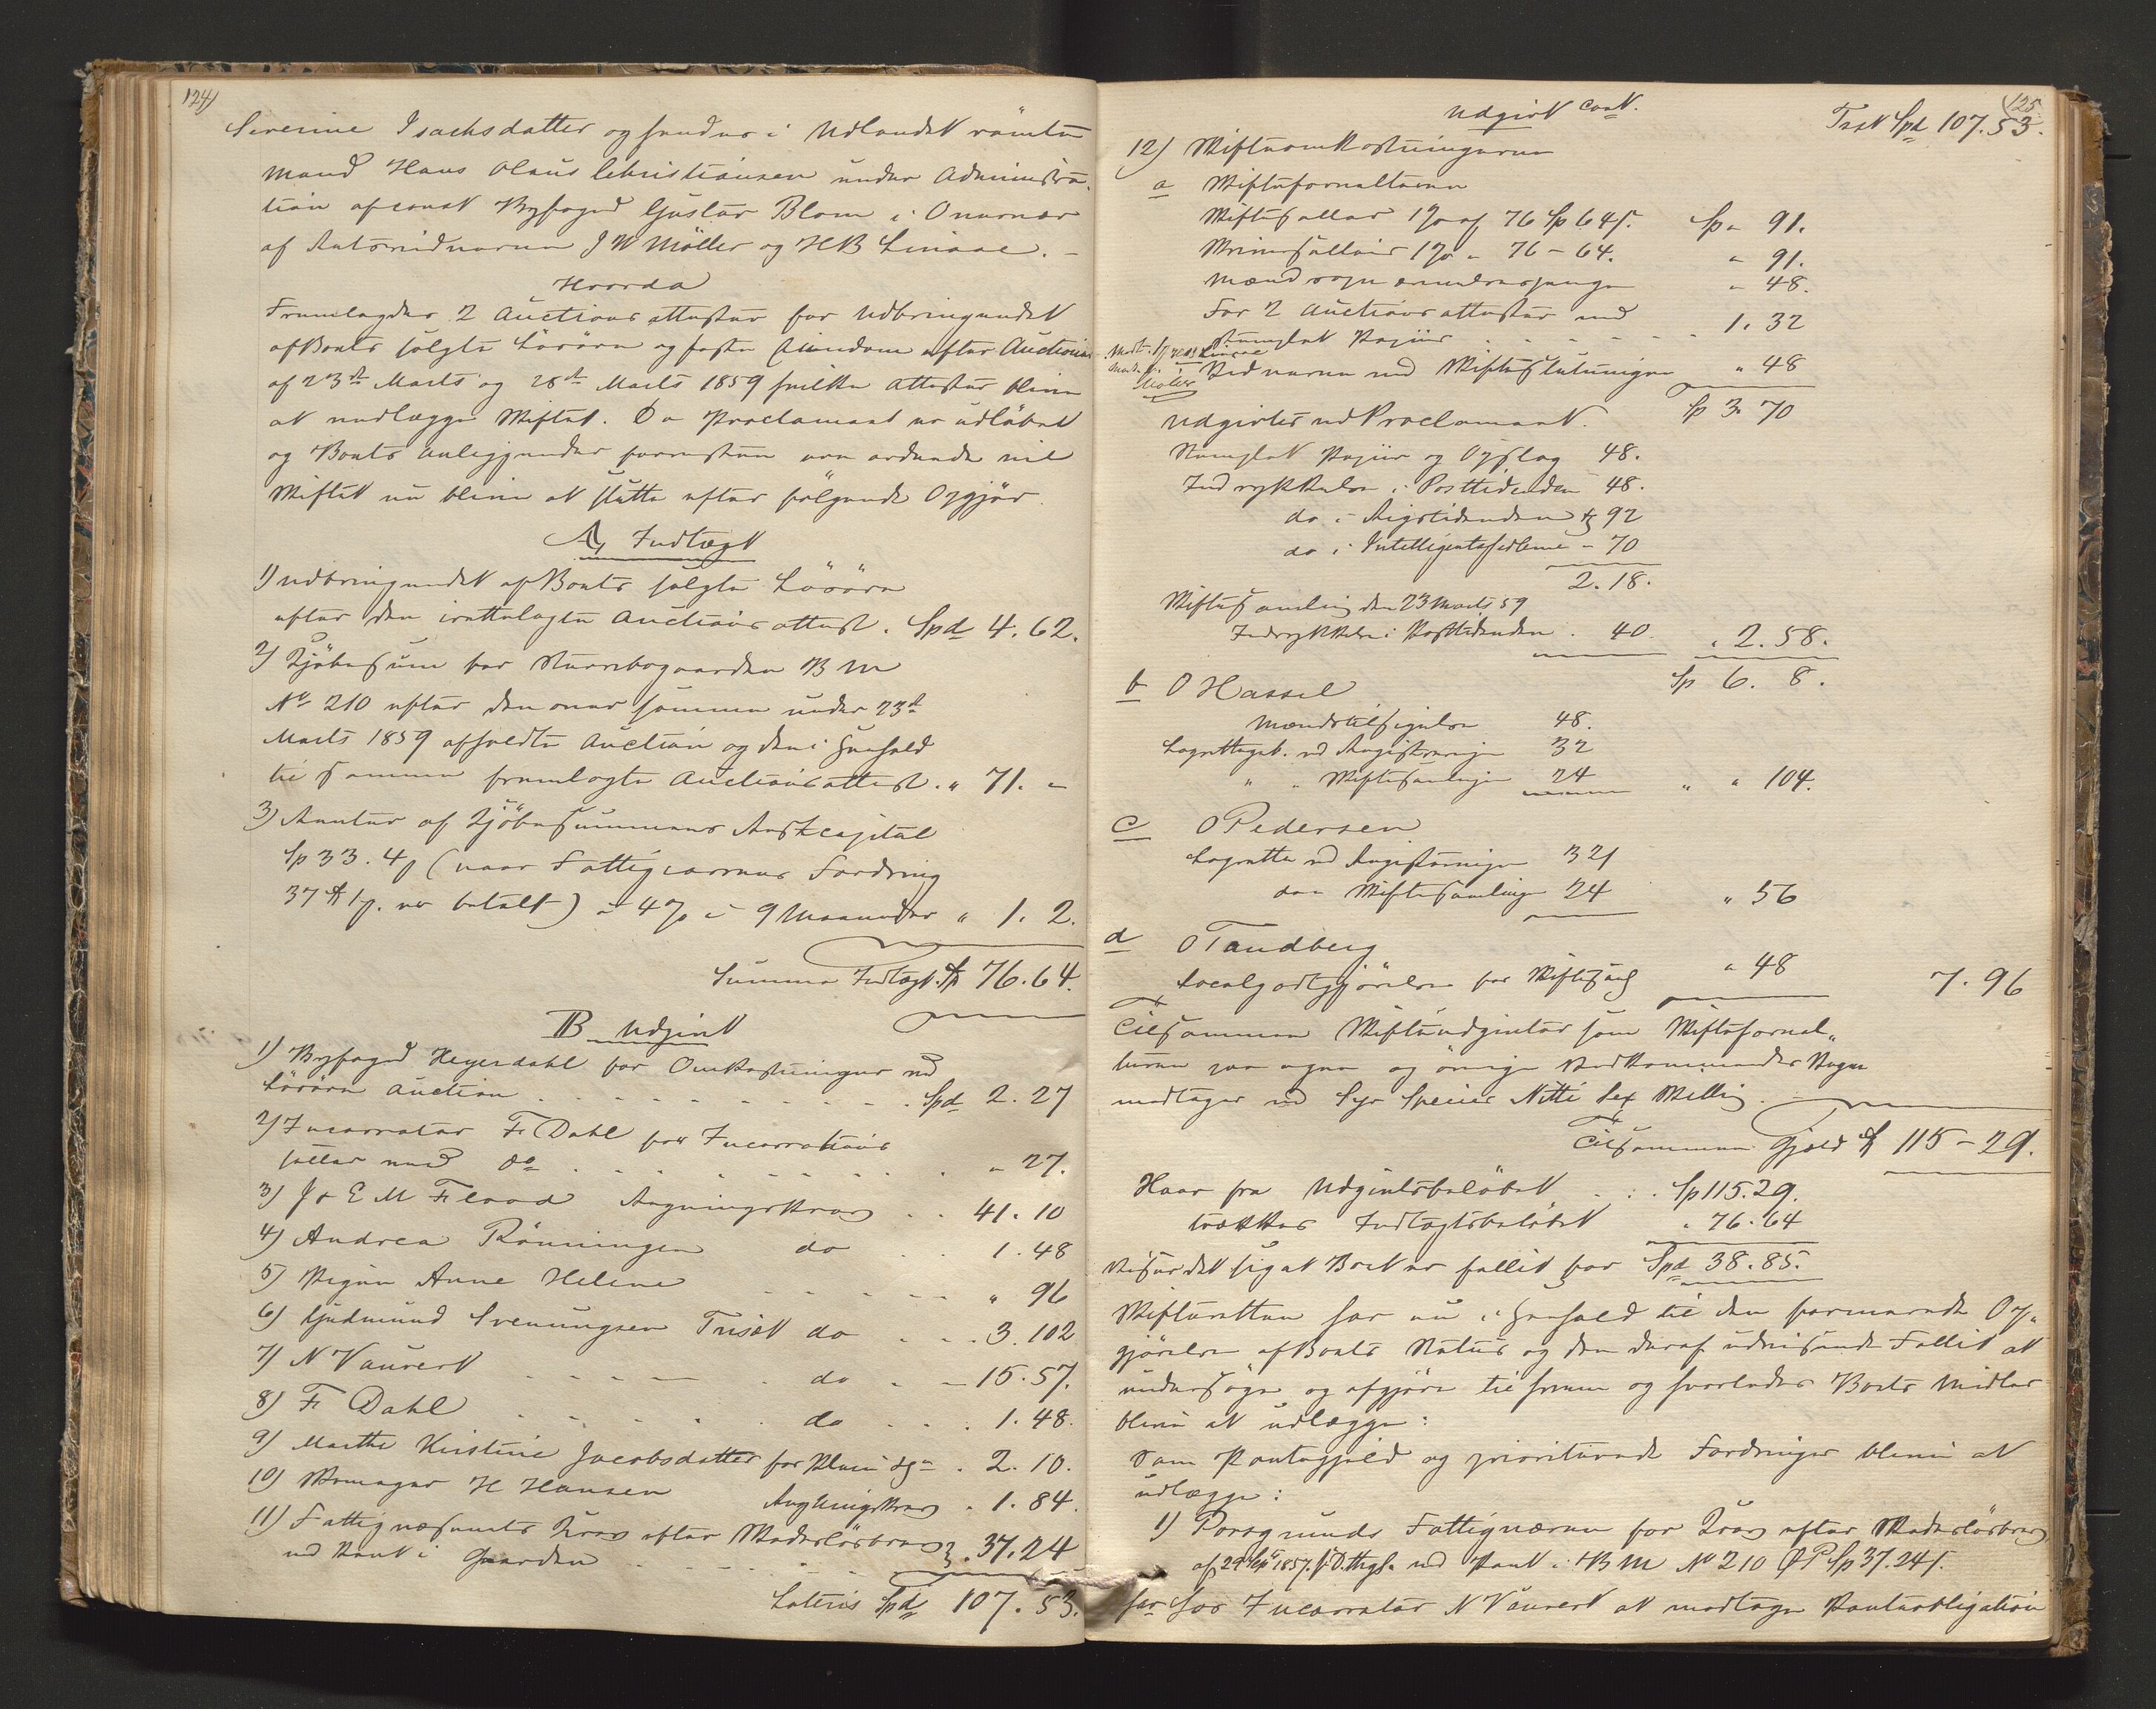 124)
Severine Isachsdatter og hendes i Udlandet rømte
Mand Hans Olaus Christiansen under Administra-
tion af const Byfoged Gustav Blom i Overvær
af Retsvidnerne J W Møller og H B Linaae. –
Hvorda
Fremlagdes 2 Auctions attester for Udbringendet
af Boets solgte Løsøre og faste Eiendom efter Auctioner
af 23de Marts og 28de Marts 1859 hvilke Attester blive
at vedlægge Skiftet. Da Proclamaet er udløbet
og Boets Anliggender forresten ere ordnede vil
Skiftet nu blive at slutte efter følgende Opgjør.
A, Indtægt
1) Udbringendet af Boets solgte Løsøre
efter den irettelagte Auctions attest. Spd 4. 62.
2) Kjøbesum for Steenbogaarden B M
No 210 efter den over samme under 23de
Marts 1859 afholdte Auction og den i Henhold
til samme fremlagte Auctionsattest. " 71. "
3) Renter af Kjøbesummens Restcapital
Sp 33. 4 β (naar Fattigvæsenets Fordring
er betalt) à 4 % i 9 Maaneder " 1. 2.
Summa Indtægt. Sp 76. 64.
B Udgivt
1) Byfoged Heyerdahl for Omkostninger ved
Løsøre Auction . . . . . Spd 2. 27
2) Incassator F. Dahl for Incassations
sallær ved do . . . . . " 27.
3) J & E M Flood Regningskrav . . 41. 10
4) Andrea Rönningen do . . 1. 48
5) Pigen Anne Helene - - - - - " 96
6) Gudmund Svenungsen Trisæt do . . . 3. 102
7) N Vauvert - - - - do - - 15. 57.
8) F. Dahl . . . . . do . . . 1. 48.
9) Marthe Kirstine Jacobsdatter for Pleie &c . 2. 10.
10) Skomager H Hansen Regningskrav . 1. 84.
11) Fattigvæsenets Krav efter Skadesløsbrev
med Pant i Gaarden . . . . 37. 24
Lateris Spd 107. 53.
125
Udgivt cont.
Trsk Spd 107. 53.
12) Skifteomkostningerne
a Skifteforvalteren
Skiftesallær 1 % af 76 Sp 64 β. Sp " 91.
Skriversallair 1 % " 76 - 64. " 91.
" 48.
For 2 Auctions attester med
stemplet Papiir . . . . 1. 32
Vidnerne ved Skifteslutningen " 48
Sp 3. 70
Udgivter ved Proclamaet.
Stemplet Papiir og Opslag 48.
Indrykkelse i Posttidenden 48.
do i Rigstidenden 92
do i Intelligentssedlerne - 70
2. 18.
Skiftesamling den 23 Marts 59
Indrykkelse i Posttidenden . 40. . 2. 58.
Sp 6. 8.
b O Hassel
Mændstilsigelse 48.
Lagrettegeb. ved Registrering 32
" " Skiftesamlingen 24 " " 104.
c O Pedersen
Lagrette ved Registreringen 32 β
do Skiftesamlingen 24 " 56
d O Tandberg
Localgodtgjørelse for Skiftehuus " 48 7. 96
Tilsammen Skifteudgivter som Skifteforval-
teren paa egne og øvrige Vedkommendes Vegne
modtager med Syv Species Nitti Sex Skilling.
Tilsammen Gjæld Sp 115 - 29.
Naar fra Udgivtsbeløbet . . . Sp 115. 29.
trækkes Indtægtsbeløbet . 76. 64
viser det sig at Boet er fallit for Spd 38. 85.
Skifteretten har nu i Henhold til den foranværende Op-
gjørelse af Boets Status og den deraf udvisende Fallit at
undersøge og afgjøre til hvem og hvorledes Boets Midler
blive at udlægge:
Som Pantegjæld og prioriterede Fordringer blive at
udlægge:
1) Porsgrunds Fattigvæsen for Krav efter Skadesløsbrev
af 29 1857. med Pant i B M No 210 Sp 37. 24 β.
har Incassator N Vauvert at modtage Panteobligation